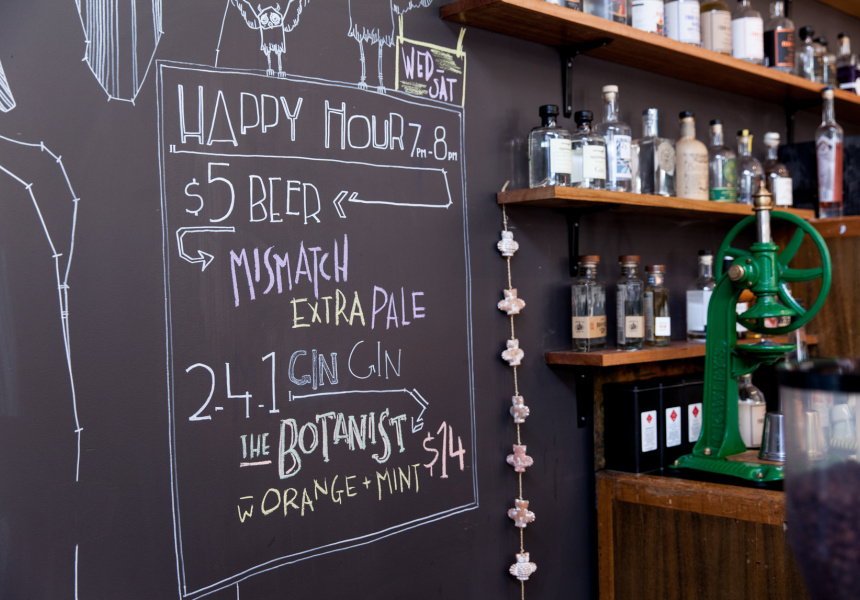 WED
SĀT
HAPPY HOUR 7PM-8PM
$5 BEER
MISMATCH
EXTRA PALE
2.4.1 GIN GIN
THE BOTANIST $14
W̄ ORANGE + MINT